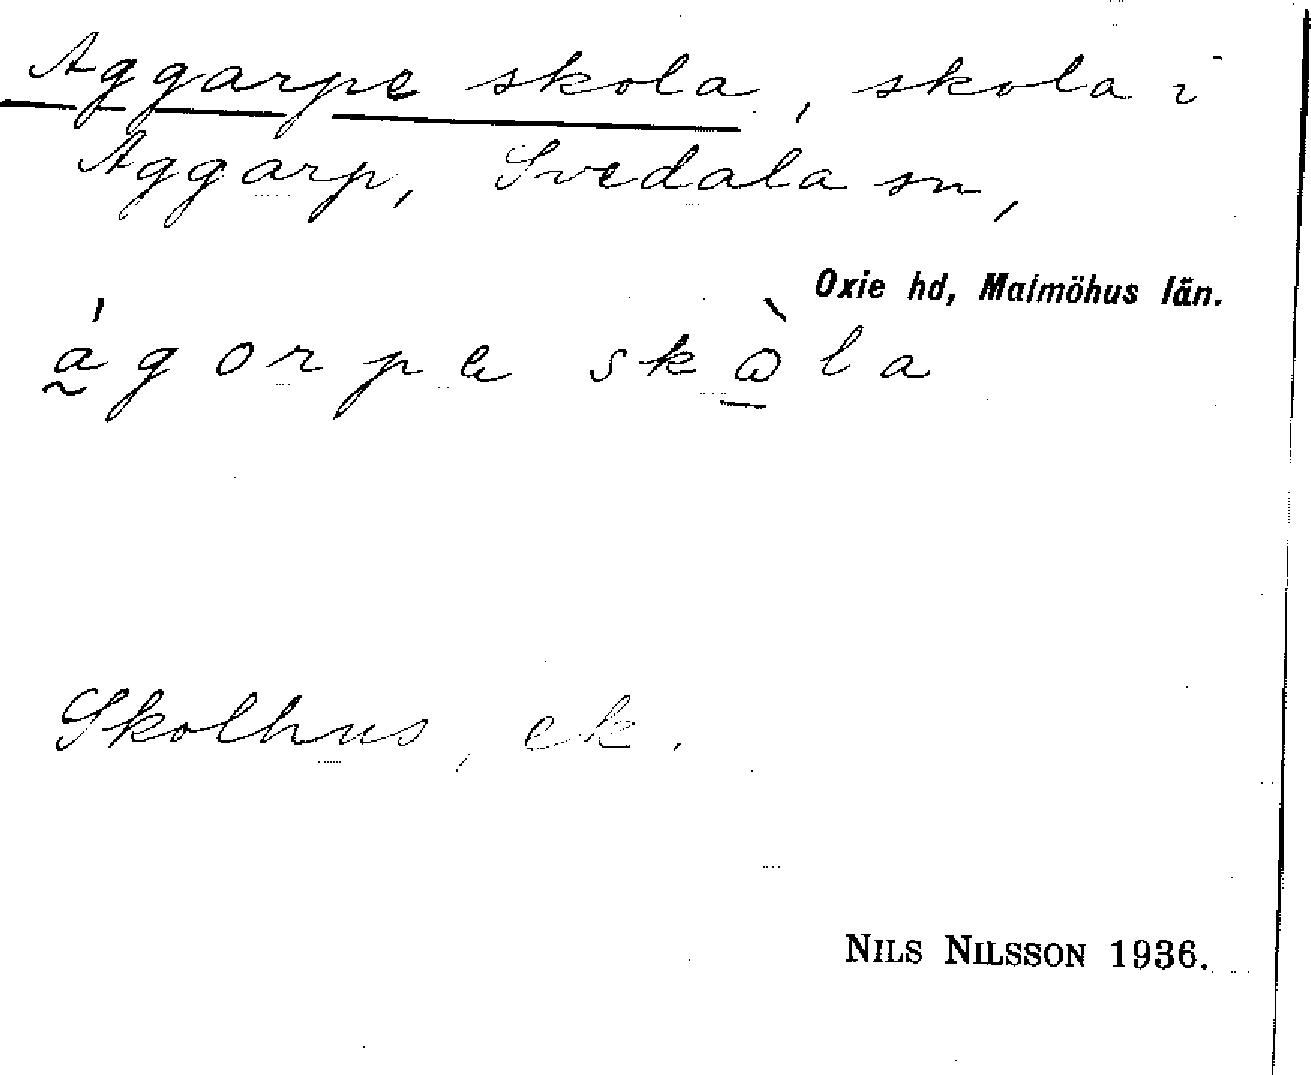 Aggarpe skola, skola i
Aggarp, Svedala sn,
Oxie hd, Malmöhus län.
ágorpe skòla
Skolhus, ek.
NILS NILSSON 1936.